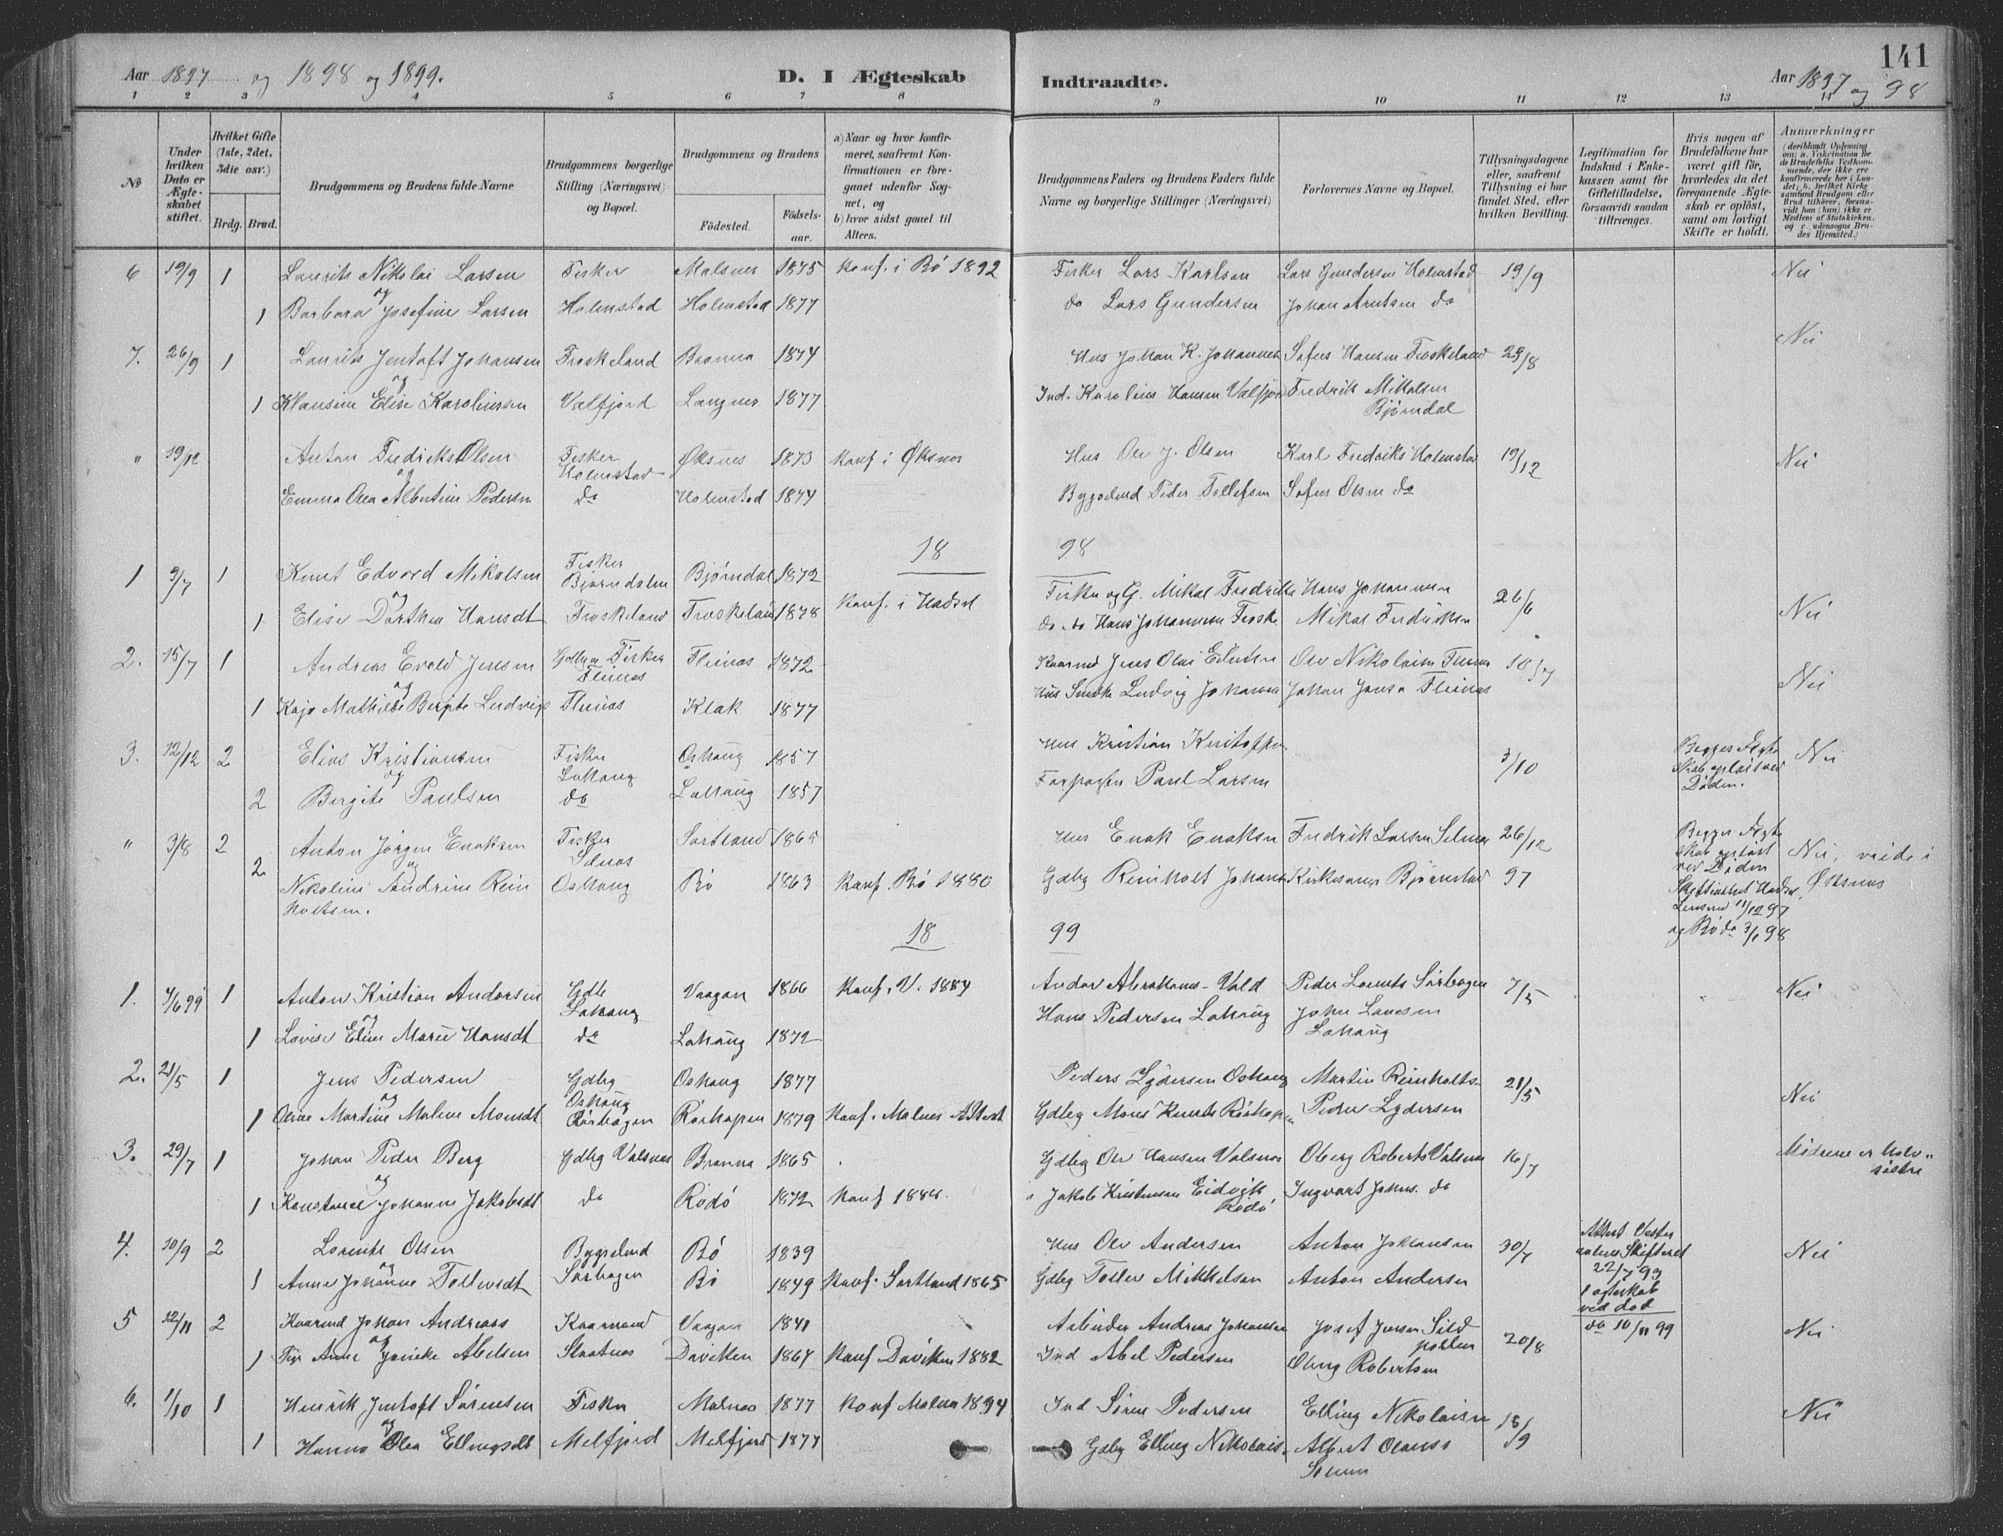 141
Aar 1897 og 1898 og 1899. D. I Ægteskab Indtraadte. Aar 1897 og 98
1 2 3 4 5 6 7 8 9 10 11 12 13 14
No
Under hvilken Dato er Ægteskabet stiftet.
Hvilket Gifte (1ste, 2det, 3die osv.)
Brdg. Brud.
Brudgommens og Brudens fulde Navne
Brudgommens borgerlige Stilling (Næringsvei) og Bopæl.
Brudgommens og Brudens
Fødested.
Fødselsaar.
a) Naar og hvor konfirmeret, saafremt Konfirmationen er foregaaet udenfor Sognet, og
b) hvor sidst gaaet til Alters.
Brudgommens Faders og Brudens Faders fulde Navne og borgerlige Stillinger (Næringsvei)
Forlovernes Navne og Bopæl.
Tillysningsdagene eller, saafremt Tillysning ei har fundet Sted, efter hvilken Bevilling.
Legitimation for Indskud i Enkekassen samt for Giftetilladelse, forsaavidt saadan tiltrænges.
Hvis nogen af Brudefolkene har været gift før, hvorledes da det foregaaende Ægteskab er opløst, samt om lovligt Skifte er holdt.
Anmærkninger
6 19/9 1 Laurits Nikolai Larsen Fisker Malnes 1875 Konf. i Bø 1892 Fisker Lars Karlsen Lars Gundersen Holmstad 19/9 Nei
og
1 Barbara Josefine Larsen Holmstad Holmstad 1877 do Lars Gundersen Johan Arntsen do
7. 26/9 1 Laurits Jentoft Johansen Froskeland Branna 1874 Hus Johan K. Johannes Sofus Hansen Froskeland 29/8 Nei
og
1 Klausine Elise Karoliussen Valfjord Langnes 1877 Ind. Karolius Hansen Valfjord Fredrik Mikalsen
Bjørndal
" 19/12 Anton Fredriks Olsen Fisker Øksnes 1873 Konf i Øksnes Hus Ole J. Olsen Karl Fredriks Holmstad 19/12 Nei
og Holmstad
Emma Olea Albertine Pedersen do Holmstad 1874 Bygselmd Peder Tollefsen Sofus Olsen do
18 98
1 9/7 1 Knut Edvard Mikalsen Fisker Bjørndalen Bjørndal 1872 Fisker og G. Mikal Fredriks Hans Johannesen 26/6 Nei
og
1 Elise Dorthea Hansdt Froskeland Froskeland 1878 Konf. i Hadsel do do Hans Johannesen Froske Mikal Fredriksen
2. 15/7 1 Andreas Evald Jensen Gdbgr Fisker Flenes Flenes 1872 Kaarmd Jens Olai Edisen Ole Nikolaisen Flenes 10/7 Nei
og
1 Kaja Mathilde Bergite Ludvigs Flenes Klak 1877 Hus Smeke Ludvig Johansen Johan Jensa Flenes
3. 12/12 2 Elias Kristiansen Fisker Oshaug 1857 Hus Kristian Kristoffer 3/10 Begges Ægteskab opløst ved Døden. Nei
og Lahaug
2 Bergite Paulsen do Lahaug 1857 Forpagter Paul Larsen
" 3/8 2 Anton Jørgen Enoksen Fisker Selnes Sortland 1865 Hus Enok Enoksen Fredrik Larsen Selnes 26/12 Begges Ægteskab opløst ved Døden Nei, viede i Øksnes
og
2 Nikoline Sandrine Reinholtsen. Oshaug Bø 1863 Konf. Bø 1880 Gdbg Reinholt Johans Kirkesanger Bjørnstad 97
Skifteattest Hadsel Lensmd 11/12 97
og Bø do 3/1 98
18 99
1. 4/6 99 1 Anton Kristian Andersen Gdb Lahaug Vaagan 1866 Konf. V. 1884 Andor Abrahams - Vold Peder Lorents Sørbogen 7/5 Nei
og
1 Lovise Eline Marie Hansdt do Lahaug 1872 Hans Pedersen Lahaug John Larsen
Lahaug
2. 21/5 1 Jens Pedersen Gdbg Oshaug Oshaug 1877 Peders Lydersen Oshaug Martin Reinholts- 21/5 Nei
og
1 Oline Martine Malene Monsdt Rørhogen Rørhopen 1879 Konf. Malnes Attest Gdbg Mons Knuts Rørhopen Peder Lydersen
3. 29/7 1 Johan Peder Berg Gdbg Valsnes Branna 1865 Gdbg Ole Hansen Valsnes Oberg Roberts Valsnes 16/7 Mødrene er Halvsøstre
og
1 Konstance Johanne Jakobsdt do Rødø 1872 Konf 1888. " Jakob Kristensen Eidvik, Rødø Ingvart Johns. do
4. 10/9 2 Lorents Olsen Bygselmd Bø 1839 Hus Ole Andersen Anton Johansen 30/7 Attest Vesteraalens Skifteret 22/7 93 Nei
1 Anne Johanne Tollevsdt Sørbogen Bø 1849 Konf. Sortland 1865 Gdbg Toller Mikkelsen Anton Andersen
1 ægteskab ved død
5 12/11 2 Kaarmd Johan Andreas Kaarmand Vaagan 1841 Arbeider Andreas Johansen Josef Jensen Sildpollen 20/8 do 10/11 99 Nei
og
1 Tje Anne Janike Abelsen Skaatnes Daviken 1864 Konf Daviken 1882 Ind Abel Pedersen Oberg Robertsen
6. 1/10 1 Henrik Jentoft Sørensen Fisker Malnes 1877 Konf Malnes 1894 Ind Søren Pedersen Elling Nikolaisen 18/9 Nei
og
1 Hanna Olea Ellingsdt Melfjord Melfjord 1877 Gdbg Elling Nikolais- Albert Olauss